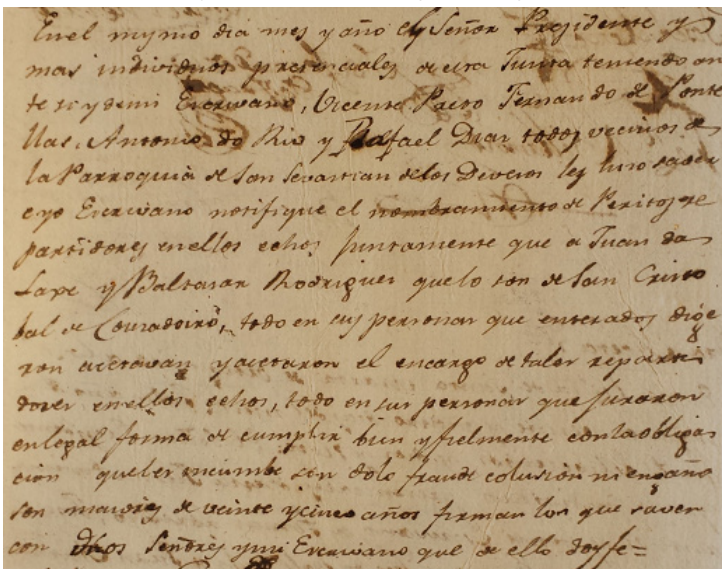 En el mymo dia mes y año el Señor Presidente y
mas individuos presenciales de esta Junta teniendo an
te sy demi Escrivano, Vicente Preto Fernando de Ponte
llas, Antonio do Rio y Rafael Diaz todos vecinos de
la Parroquia de San Sevastian delos Deveros les hizo saver
e yo Escrivano notifique el nombramiento de Peritos re
partidores en ellos echos juntamente que a Juan da
Laxe y Baltasar Rodriguez quelo son de San Cristo
bal de Couzadoiro, todo en sus personas que enterados dige
ron acetavan y acetaron el encargo de tales reparti
dores en ellos echos, todo en sus personas que juraron
en legal forma de cumplir bien y fielmente con la obliga
cion queles incumbe son dolo fraude colusion ni engaño
son maiores de veinte y cinco años firman los que saven
con dhos Señores y mi Escrivano que de ello doy fe=